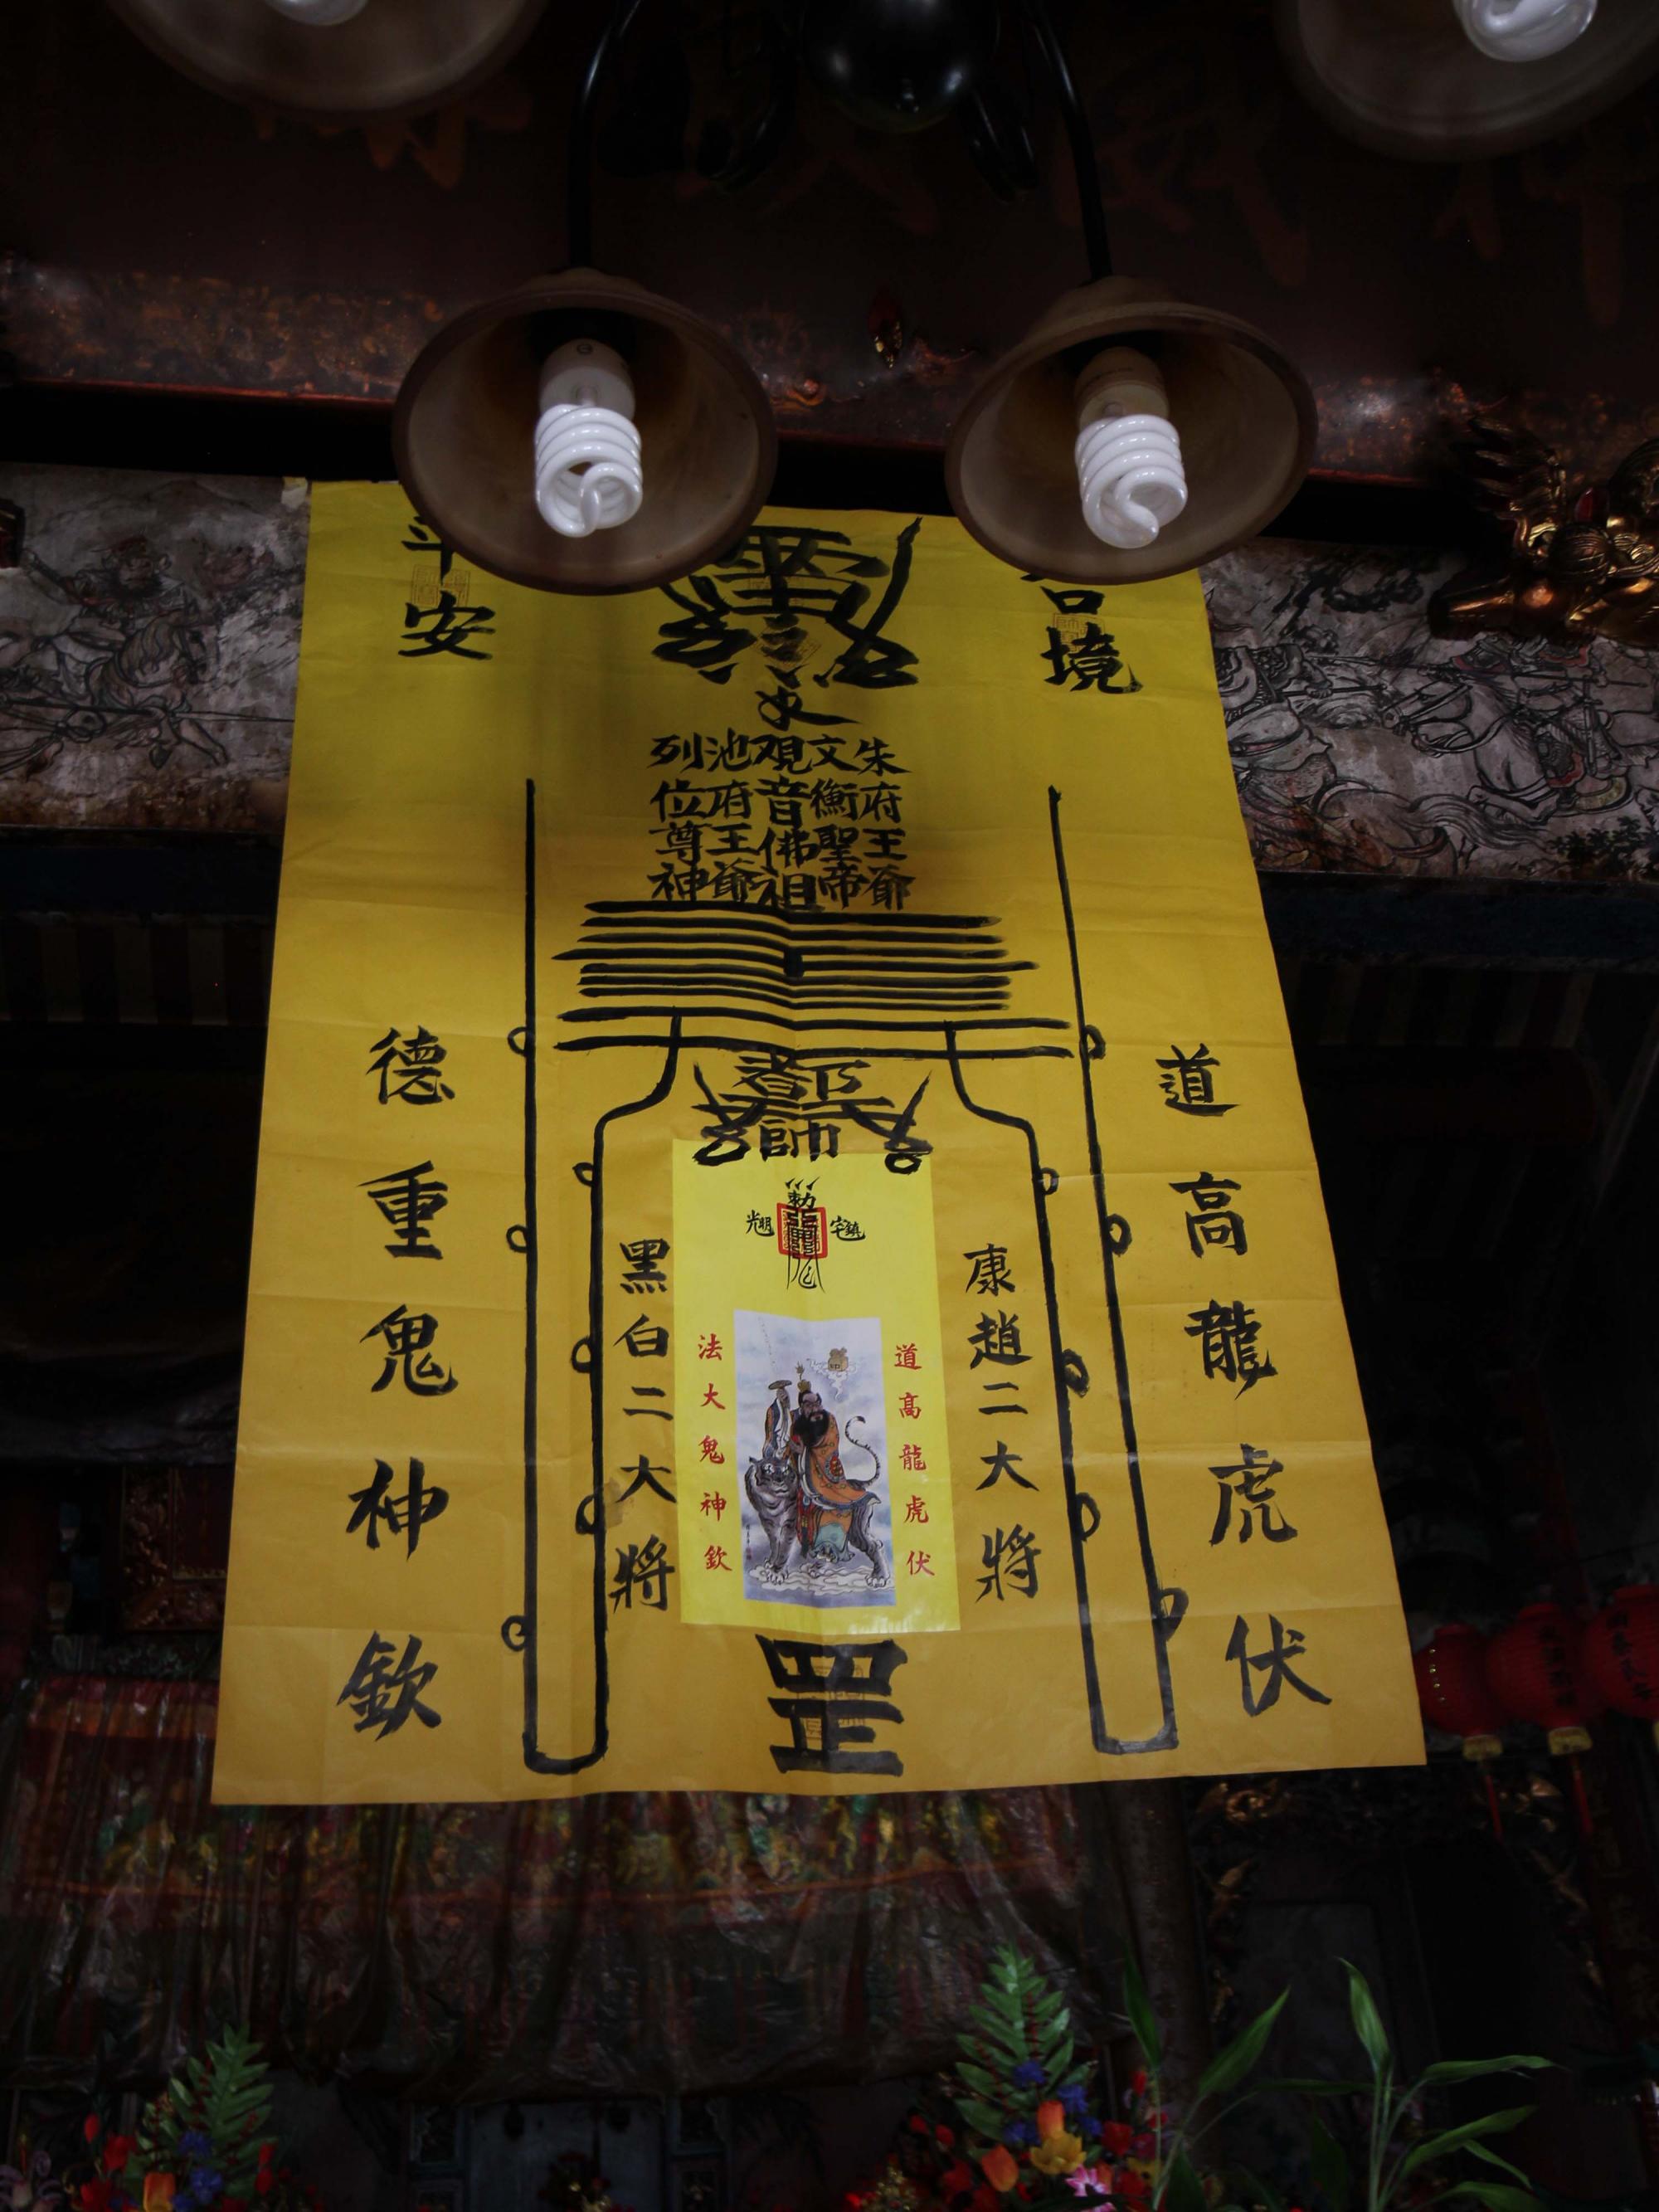 境
平安
朱府王爺
文衡聖帝
觀音佛祖
池府王爺
列位尊神
道高龍虎伏
德重鬼神欽
帥
康趙二大將
黑白二大將
勅
鎮宅
光明
道高龍虎伏
法大鬼神欽
罡